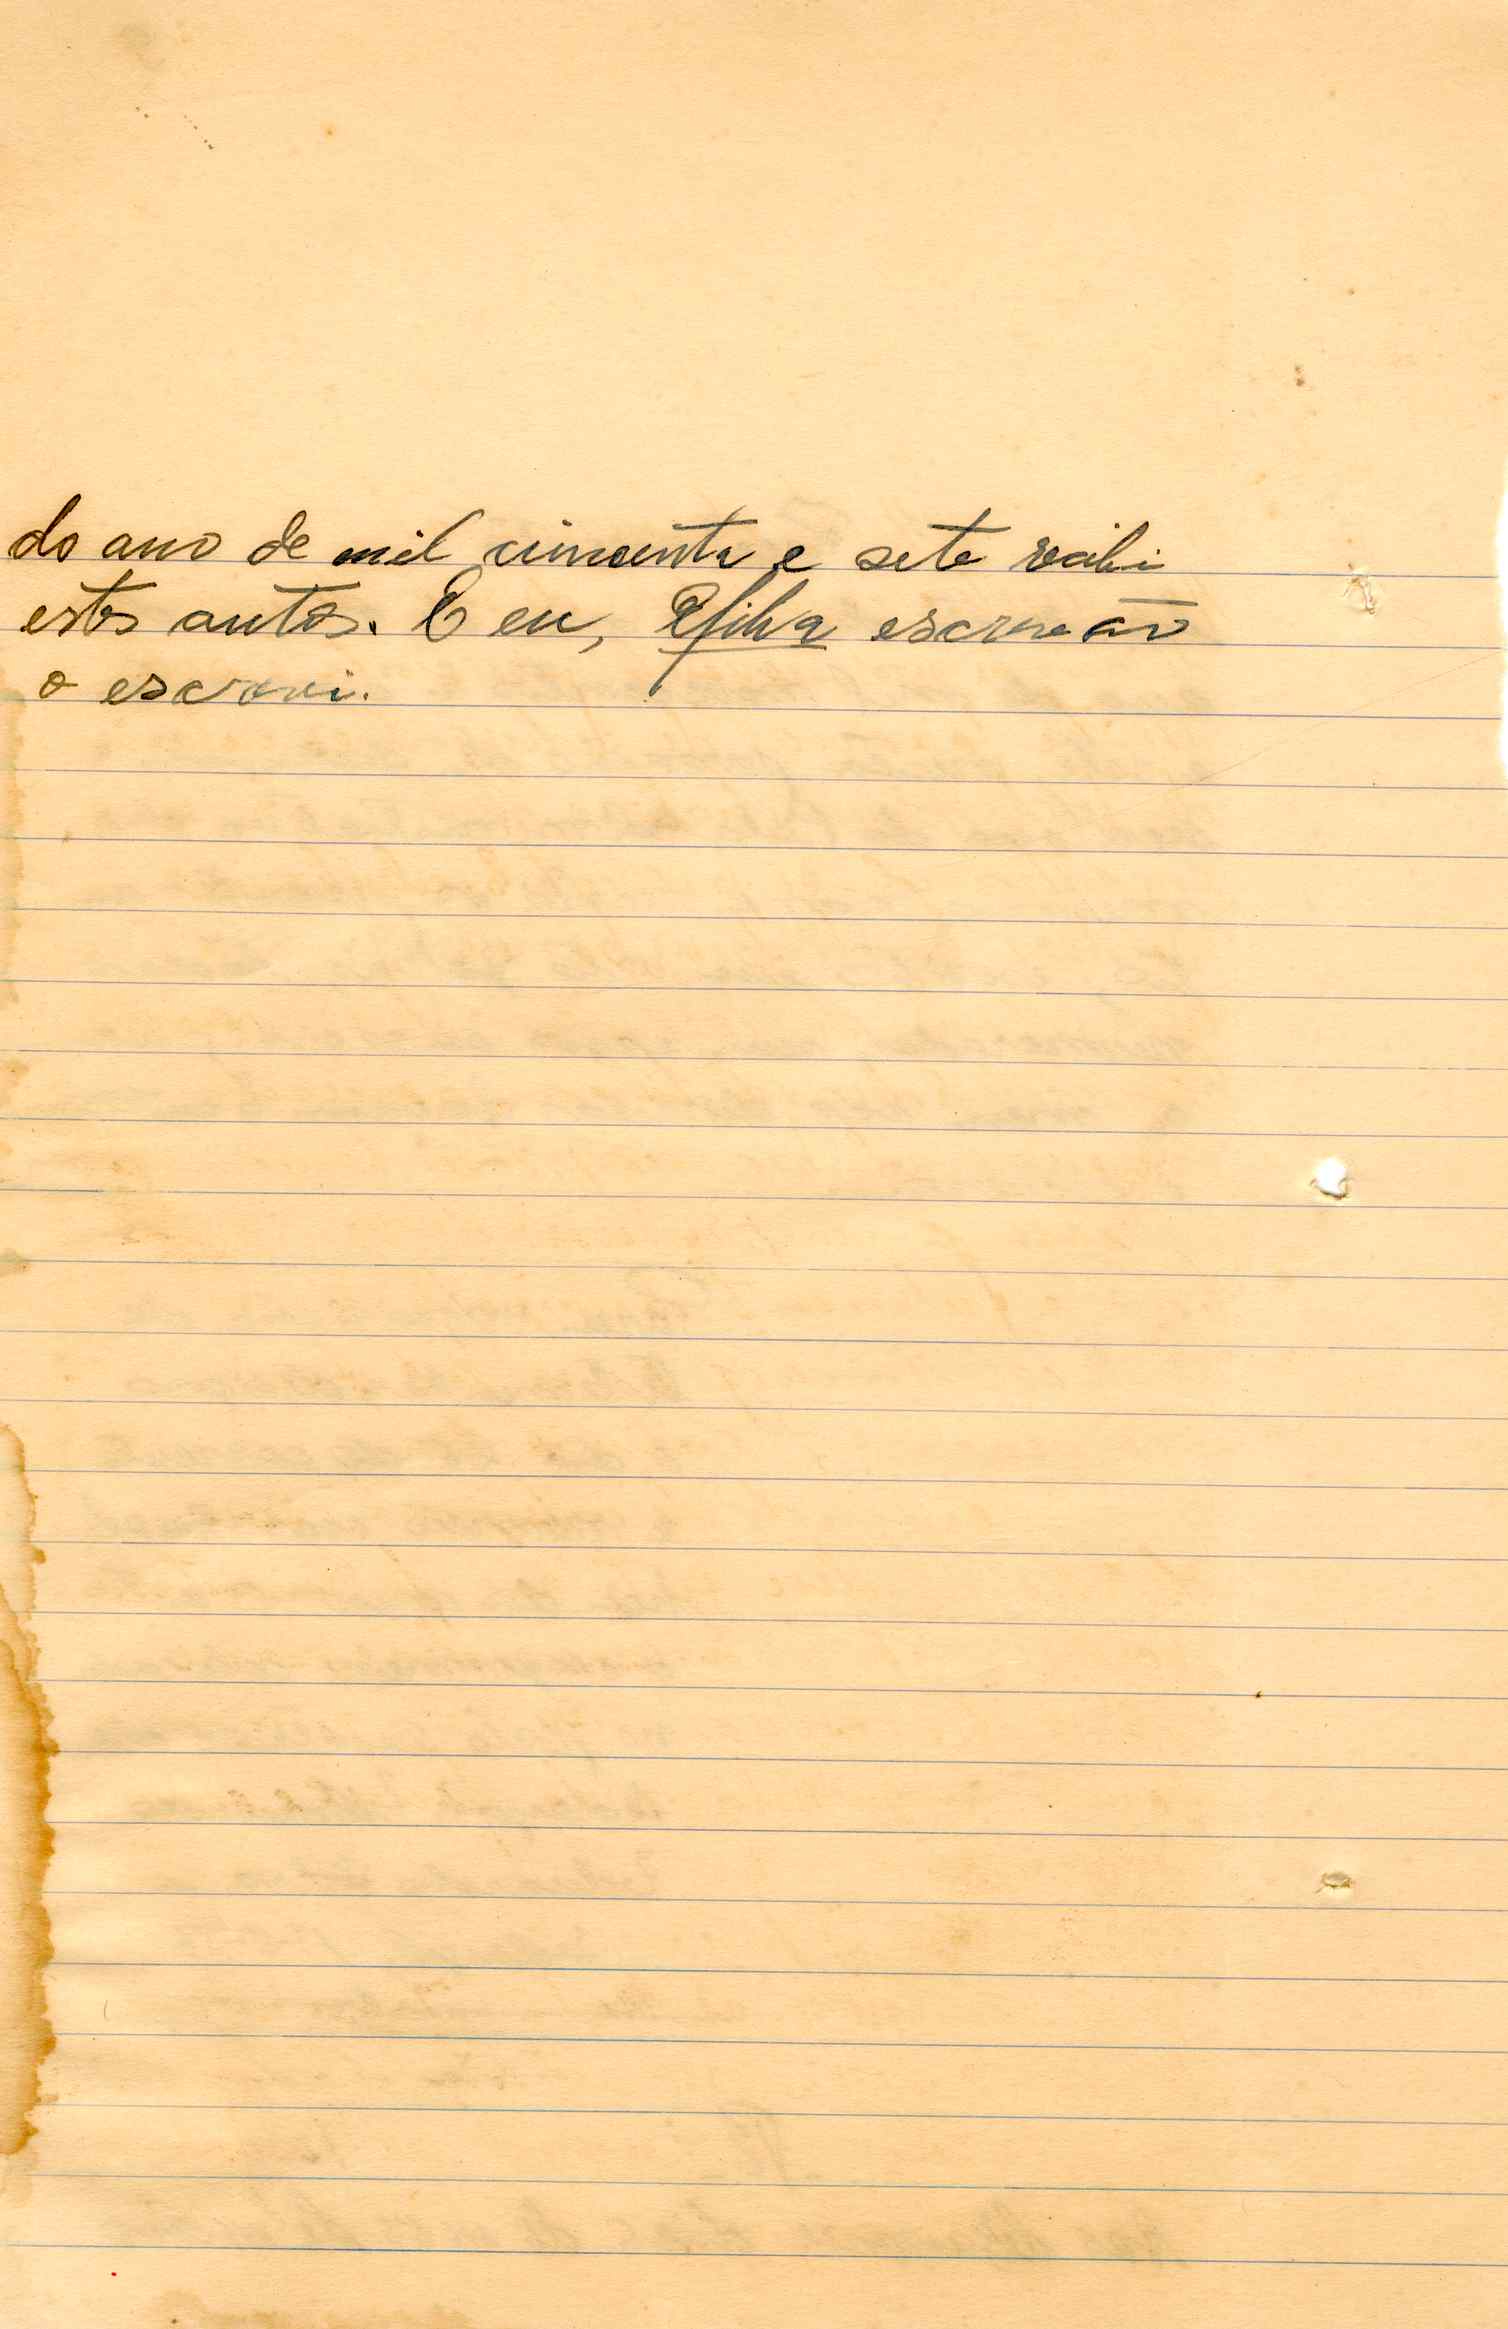 do ano de mil cincoenta e sete recebi
estes autos. E eu, RSilva escrivão
o escrevi.